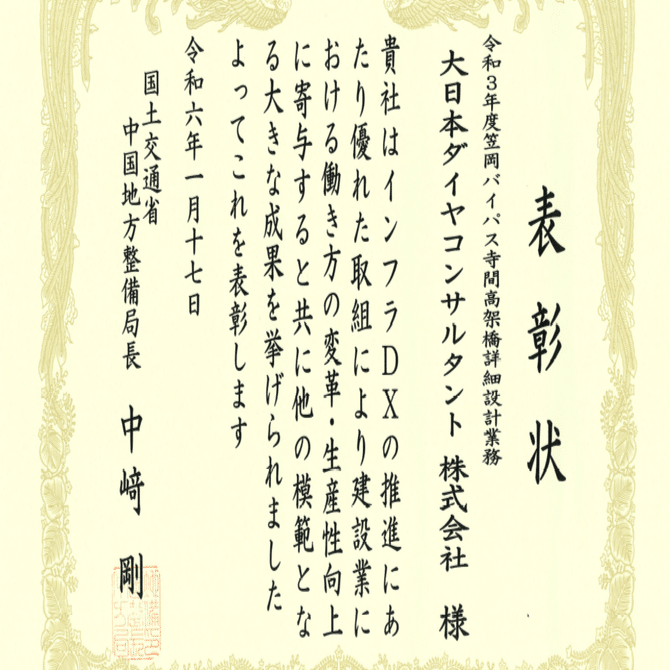 表彰状
令和3年度笠岡バイパス寺間高架橋詳細設計業務
大日本ダイヤコンサルタント 株式会社 様
貴社はインフラDXの推進にあ
たり優れた取組により建設業に
おける働き方の変革・生産性向上
に寄与すると共に他の模範とな
る大きな成果を挙げられました
よってこれを表彰します
令和六年一月十七日
国土交通省
中国地方整備局長 中﨑 剛